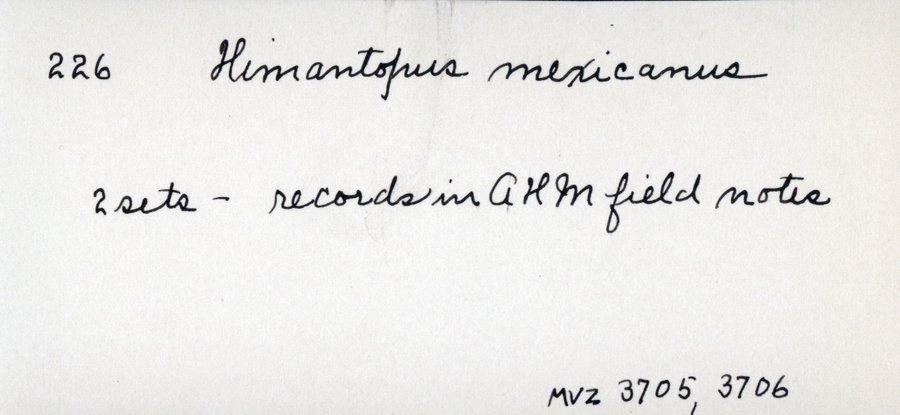 226 Himantopus mexicanus
2 sets - records in AHM field notes
MVZ 3705, 3706